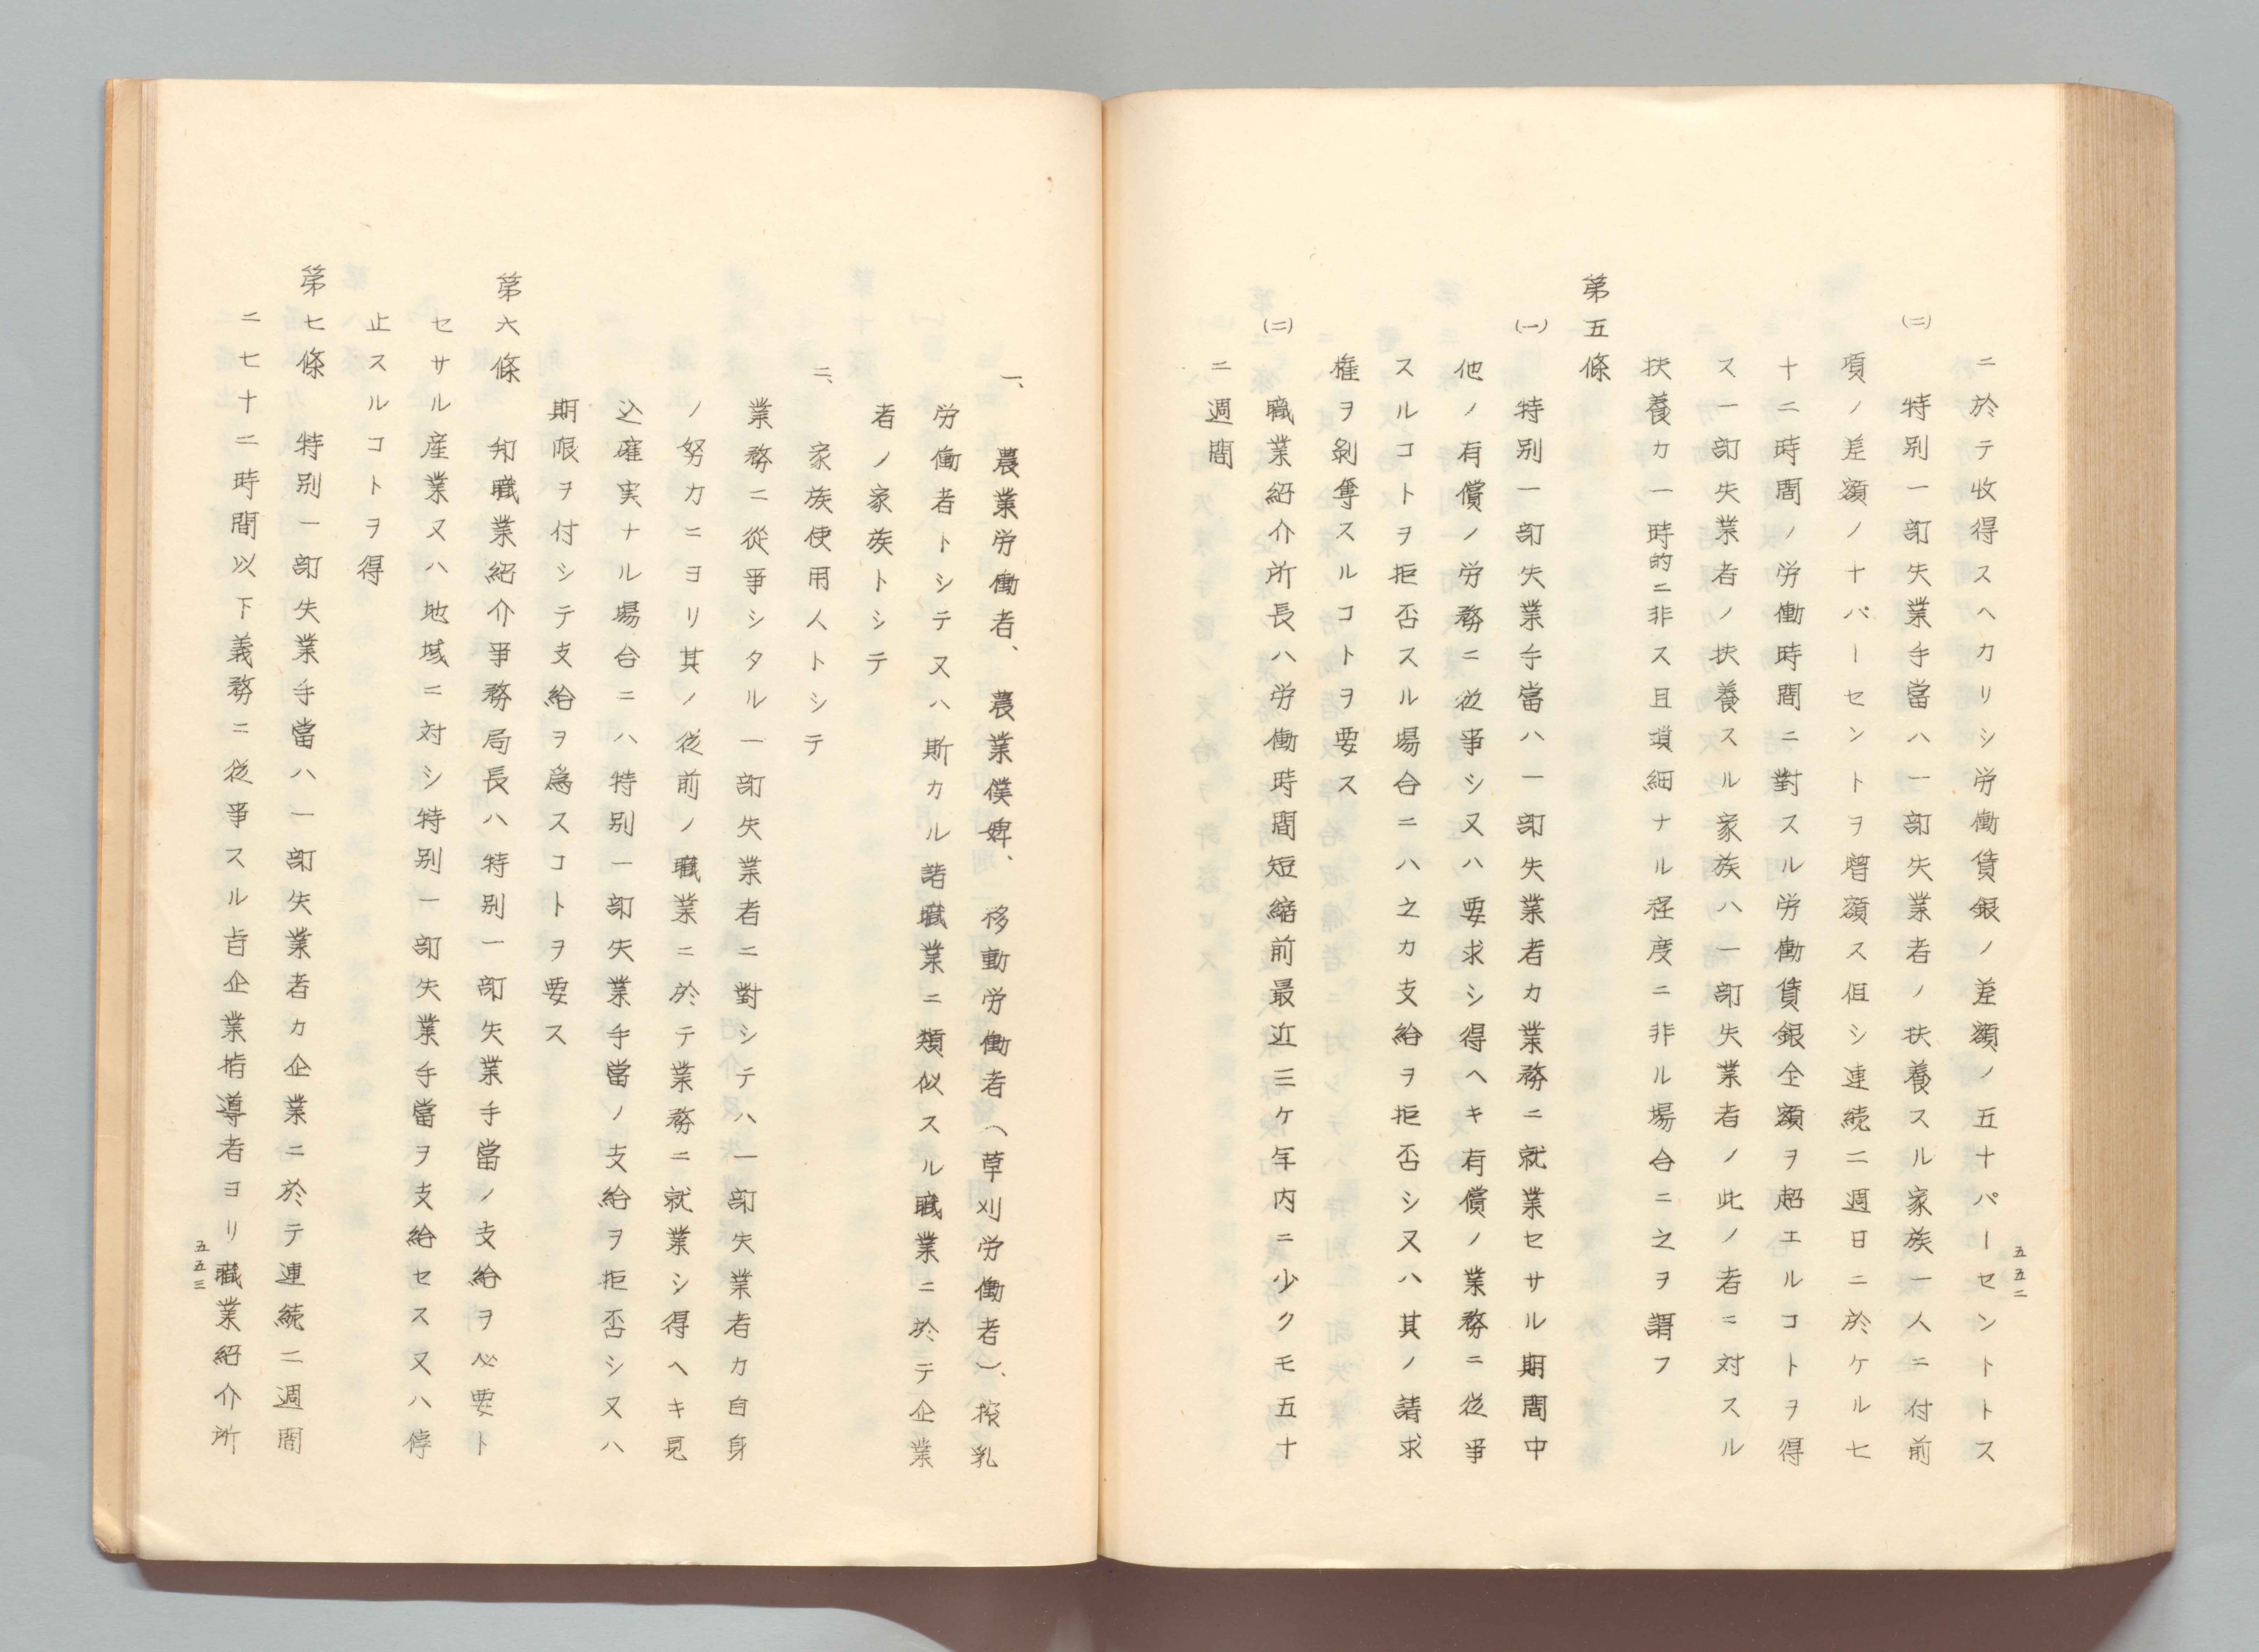 ニ於テ收得スヘカリシ労働賃銀ノ差額ノ五十パーセントトス
(二) 特別一部失業手當ハ一部失業者ノ扶養スル家族一人ニ付前
項ノ差額ノ十パーセントヲ増額ス但シ連続二週日ニ於ケル七
十二時間ノ労働時間ニ對スル労働賃銀全額ヲ超エルコトヲ得
ス一部失業者ノ扶養スル家族ハ一部失業者ノ此ノ者ニ対スル
扶養カ一時的ニ非ス且瑣細ナル程度ニ非ル場合ニ之ヲ謂フ
第五條
(一) 特別一部失業手當ハ一部失業者カ業務ニ就業セサル期間中
他ノ有償ノ労務ニ従事シ又ハ要求シ得ヘキ有償ノ業務ニ従事
スルコトヲ拒否スル場合ニハ之カ支給ヲ拒否シ又ハ其ノ請求
権ヲ剝奪スルコトヲ要ス
(二) 職業紹介所長ハ労働時間短縮前最近三ケ年内ニ少クモ五十
二週間
五五二
一、農業労働者、農業僕婢、移動労働者(草刈労働者)、搾乳
労働者トシテ又ハ斯カル諸職業ニ類似スル職業ニ於テ企業
者ノ家族トシテ
二、家族使用人トシテ
業務ニ從事シタル一部失業者ニ對シテハ一部失業者カ自身
ノ努力ニヨリ其ノ従前ノ職業ニ於テ業務ニ就業シ得ヘキ見
込確実ナル場合ニハ特別一部失業手當ノ支給ヲ拒否シ又ハ
期限ヲ付シテ支給ヲ為スコトヲ要ス
第六條 州職業紹介事務局長ハ特別一部失業手當ノ支給ヲ必要ト
セサル産業又ハ地域ニ対シ特別一部失業手當ヲ支給セス又ハ停
止スルコトヲ得
第七條 特別一部失業手當ハ一部失業者カ企業ニ於テ連続二週間
ニ七十二時間以下義務ニ従事スル旨企業指導者ヨリ職業紹介所
五五三